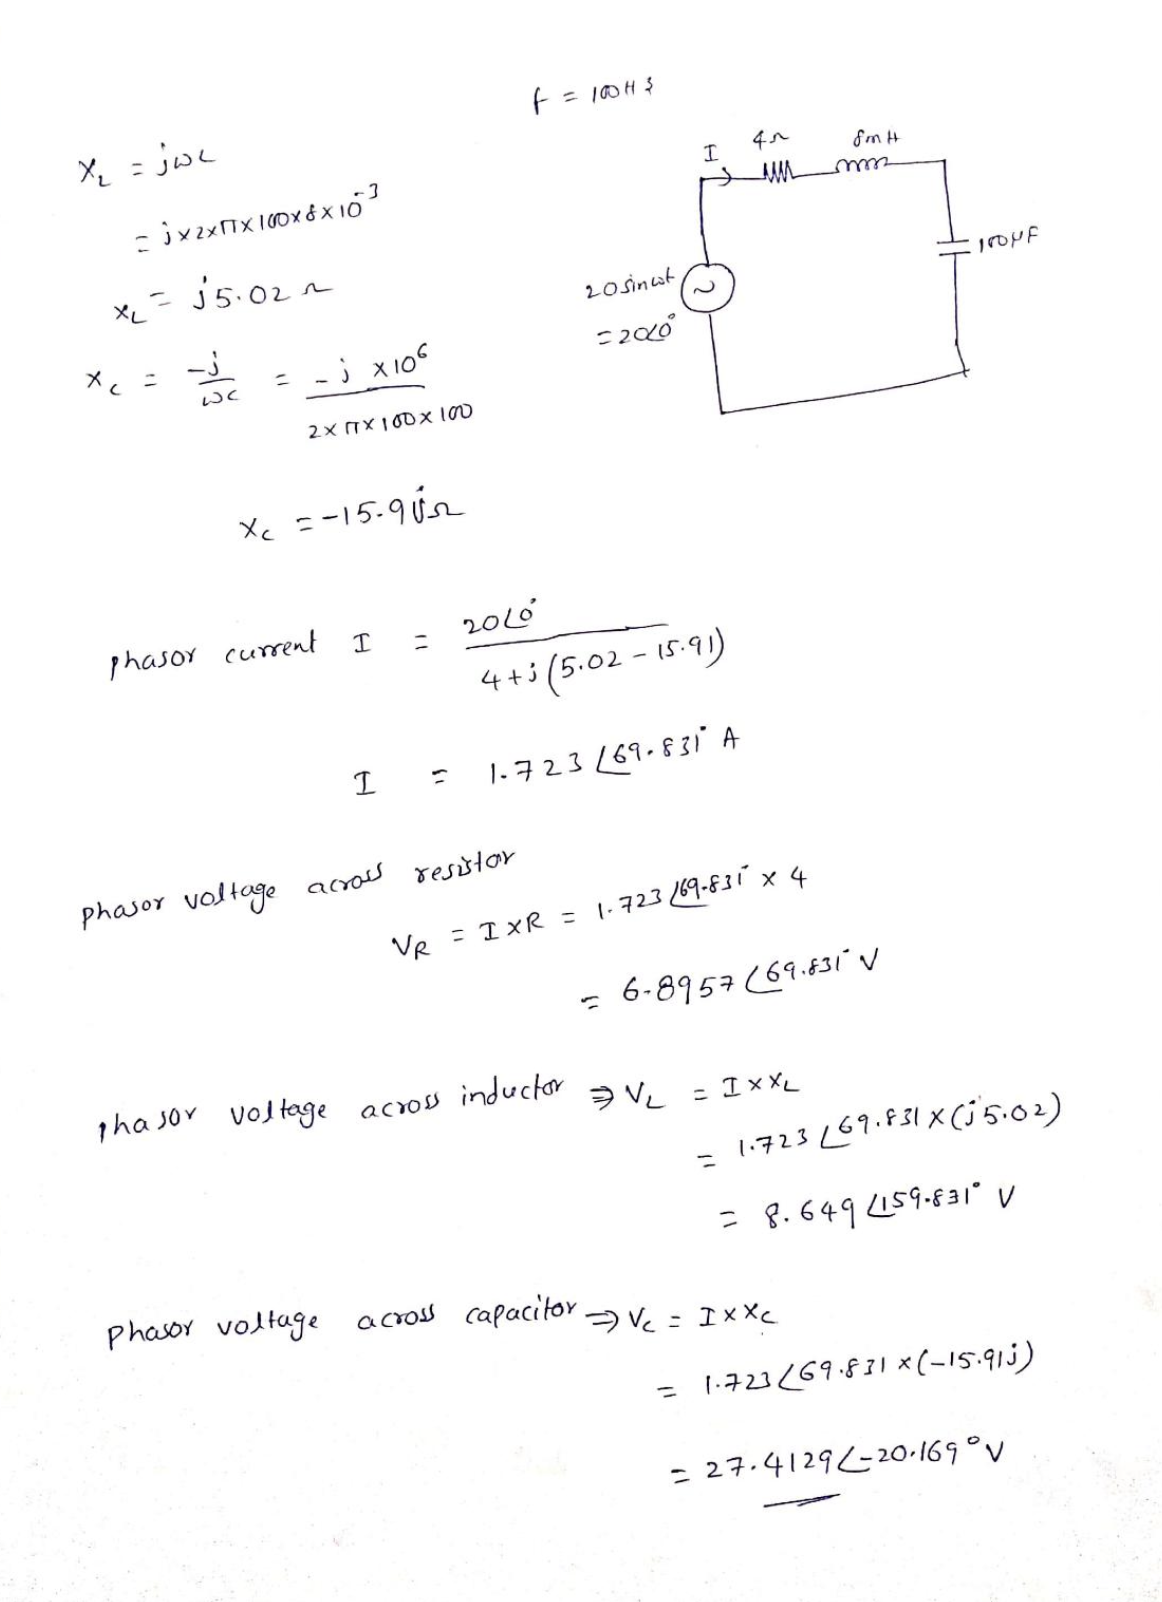 f = 100Hz
X_L = jωL
= j×2×π×100×8×10^-3
X_L = j5.02 Ω
X_C = -j/ωC = -j×10^6/2×π×100×100
X_C = -15.91jΩ
I 4Ω 8mH
100μF
20sinωt
=20∠0°
phasor current I = 20∠0°/4+j(5.02-15.91)
I = 1.723∠69.831° A
phasor voltage across resistor
V_R = I×R = 1.723∠69.831° × 4
= 6.8957∠69.831° V
phasor voltage across inductor ⇒ V_L = I×X_L
= 1.723∠69.831×(j5.02)
= 8.649∠159.831° V
Phasor voltage across capacitor ⇒ V_C = I×X_C
= 1.723∠69.831×(-15.91j)
= 27.4129∠-20.169° V